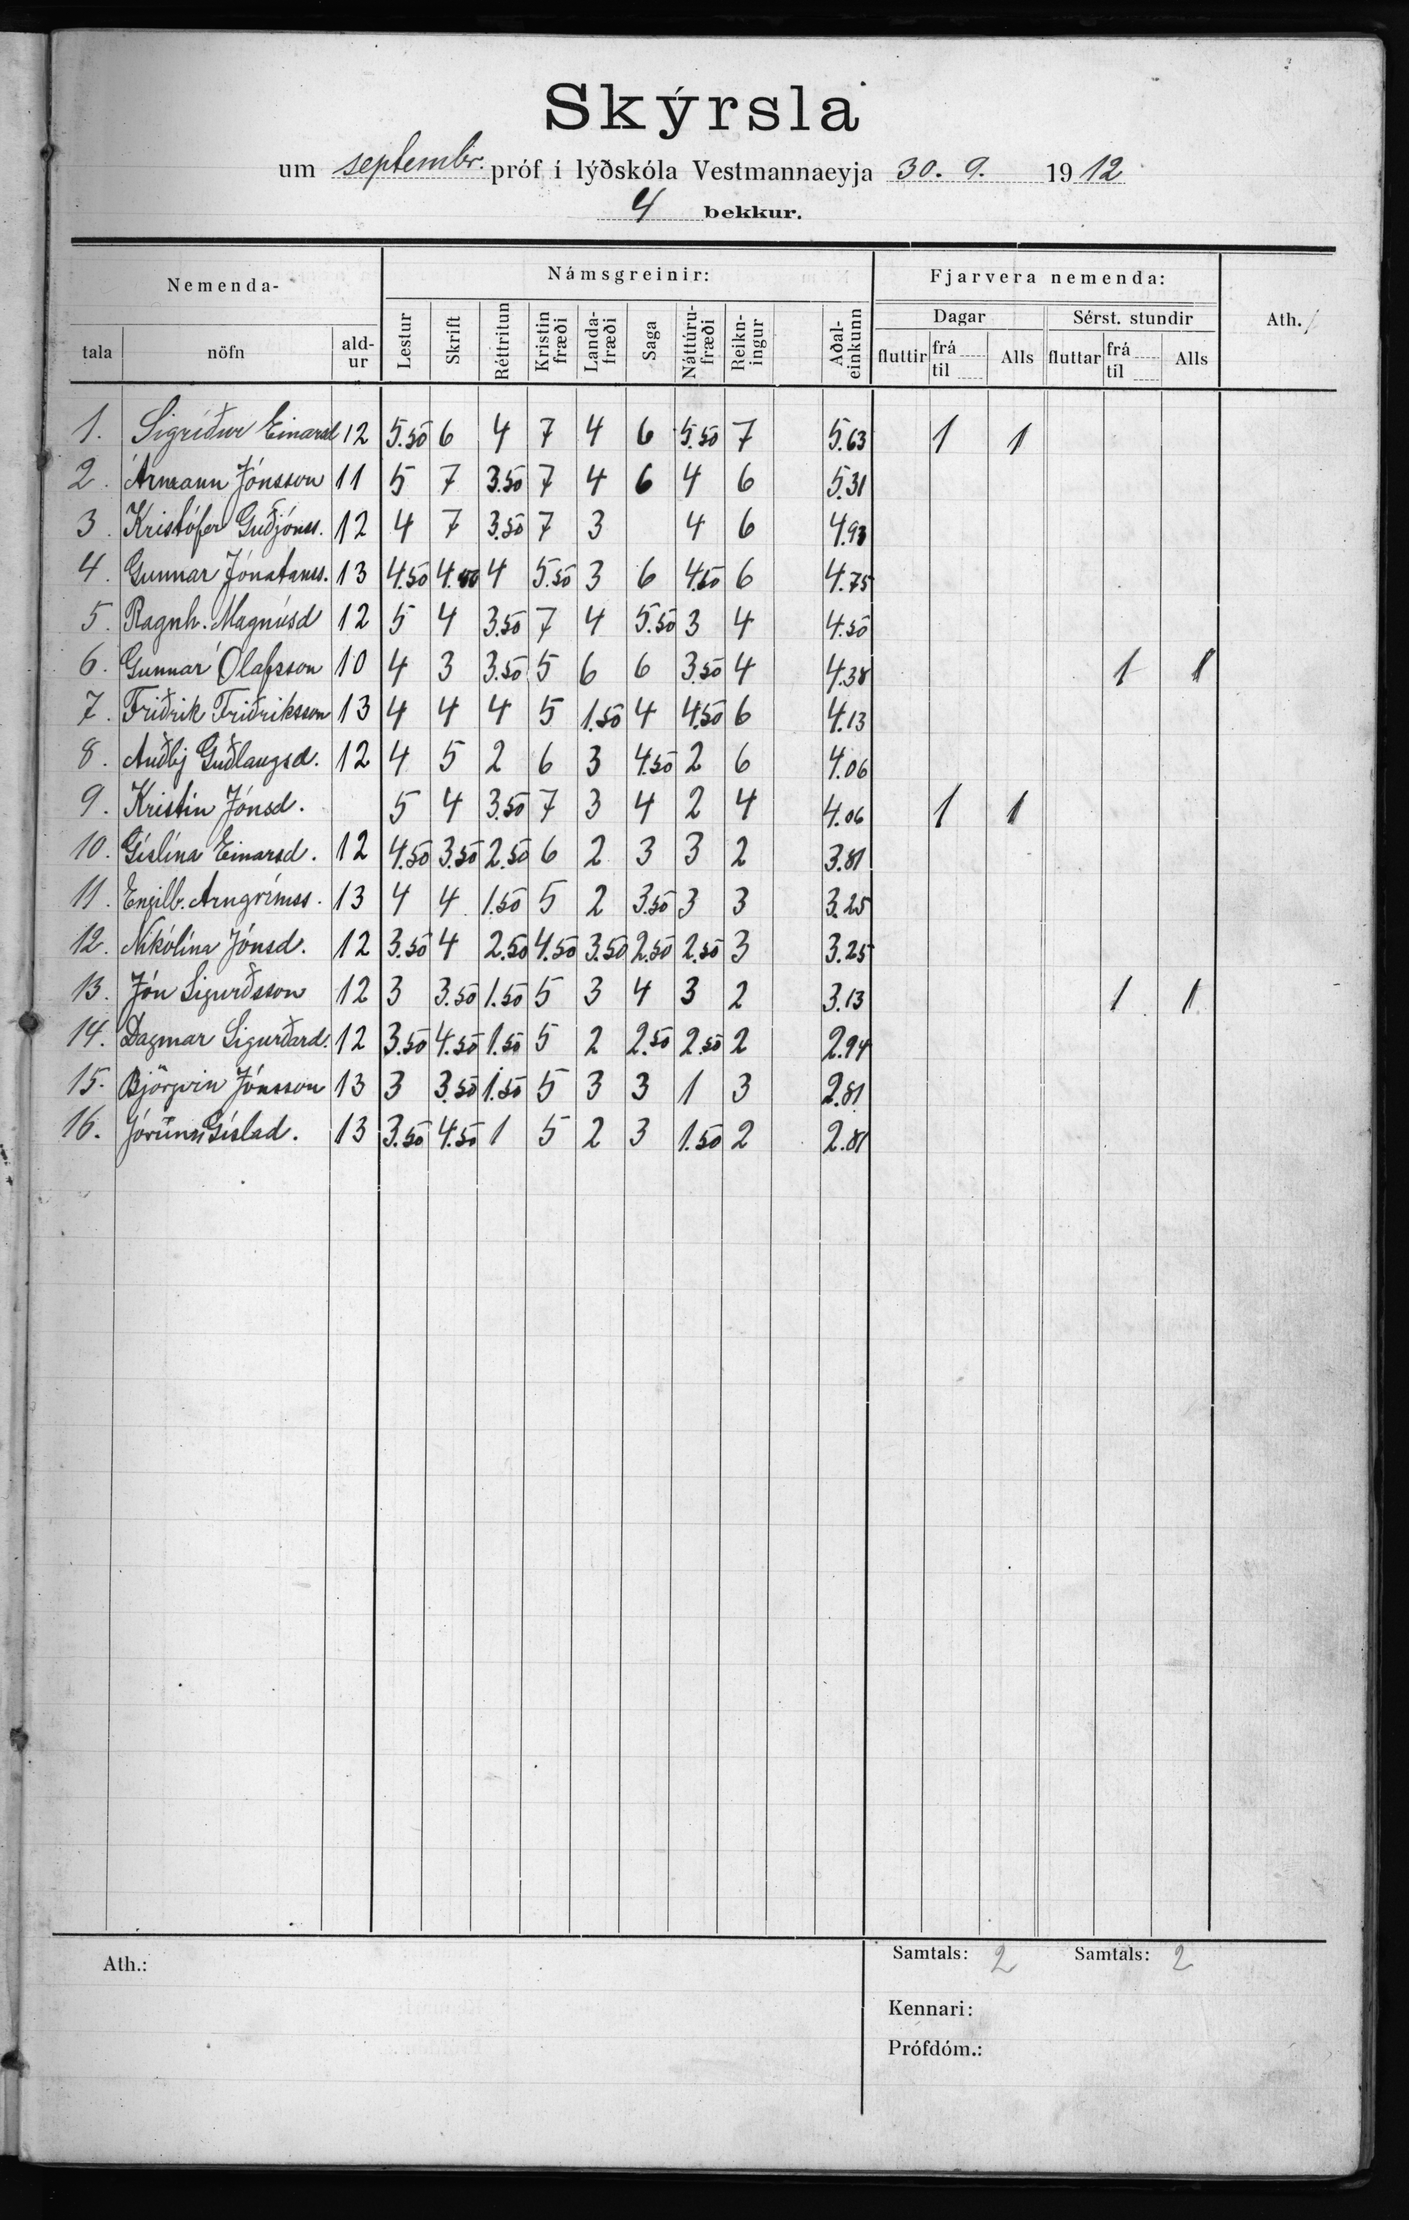 Skýrsla
um septembr. próf í lýðskóla Vestmannaeyja 30. 9. 1912
4 bekkur.
Nemenda- Námsgreinir: Fjarvera nemenda: Ath.
Dagar Sérst. stundir
tala nöfn ald-ur Lestur Skrift Réttritun Kristin fræði Landa-fræði Saga Náttúru-fræði Reikn-ingur Aðal-einkunn fluttir frá til Alls fluttar frá til Alls
1. Sigríður Einarsd 12 5.50 6 4 7 4 6 5.50 7 5.63 1 1
2. Ármann Jónsson 11 5 7 3.50 7 4 6 4 6 5.31
3. Kristófer Guðjónss. 12 4 7 3.50 7 3 4 6 4.93
4. Gunnar Jónatanss. 13 4.50 4.50 4 5.50 3 6 4.50 6 4.75
5. Ragnh. Magnúsd 12 5 4 3.50 7 4 5.50 3 4 4.50
6. Gunnar Ólafsson 10 4 3 3.50 5 6 6 3.50 4 4.38 1 1
7. Friðrik Friðriksson 13 4 4 4 5 1.50 4 4.50 6 4.13
8. Auðbj Guðlaugsd. 12 4 5 2 6 3 4.50 2 6 4.06
9. Kristín Jónsd. 5 4 3.50 7 3 4 2 4 4.06 1 1
10. Gíslína Einarsd. 12 4.50 3.50 2.50 6 2 3 3 2 3.81
11. Engilb. Arngrímss. 13 4 4 1.50 5 2 3.50 3 3 3.25
12. Nikólína Jónsd. 12 3.50 4 2.50 4.50 3.50 2.50 2.50 3 3.25
13. Jón Sigurðsson 12 3 3.50 1.50 5 3 4 3 2 3.13 1 1
14. Dagmar Sigurðard. 12 3.50 4.50 1.50 5 2 2.50 2.50 2 2.94
15. Björgvin Jónsson 13 3 3.50 1.50 5 3 3 1 3 2.81
16. Jórunn Gíslad. 13 3.50 4.50 1 5 2 3 1.50 2 2.81
Ath.: Samtals: 2 Samtals: 2
Kennari:
Prófdóm.: